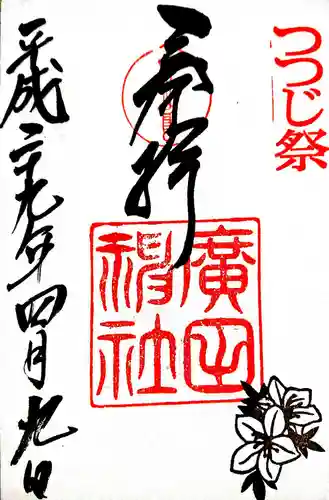 つつじ祭
奉拝
廣田神社
平成二十九年四月九日